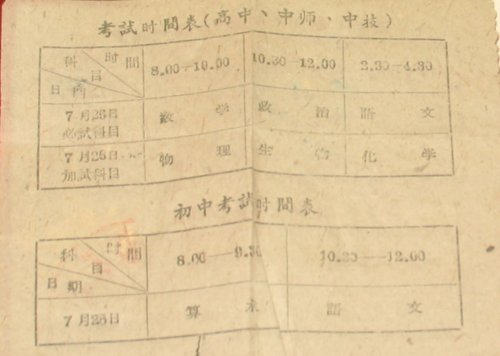 考試时間表(高中、中师、中技)
科目 时間 日期 8.00—10.00 10.30—12.00 2.30—4.30
7月26日 必試科目 数学 政治 語文
7月25日 加試科目 物理 生物 化学
初中考試时間表
科目 时間 日期 8.00—9.30 10.30—12.00
7月26日 算术 語文